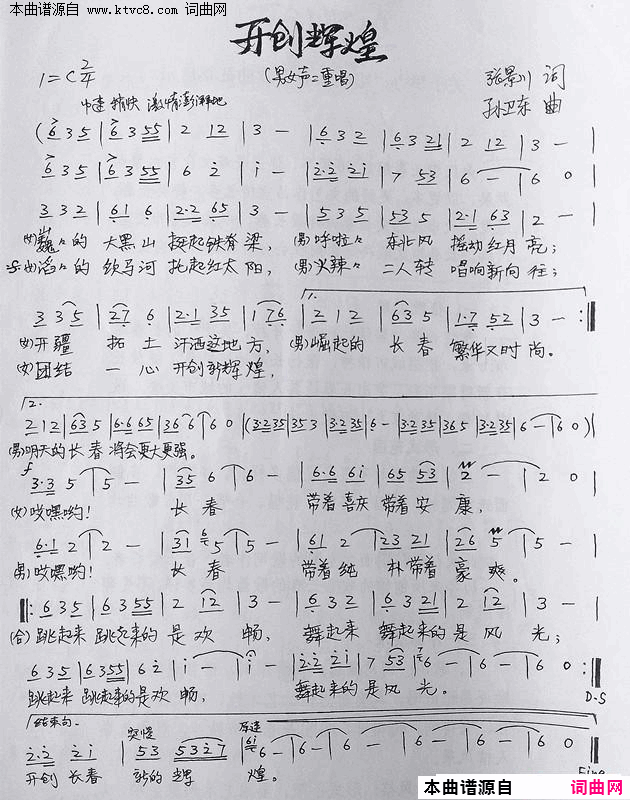 本曲谱源自 www.ktvc8.com 词曲网
开创辉煌
(男女声二重唱)
1=C 2/4
中速 稍快 激情澎湃地
张景川 词
孙卫东 曲
(6 3 5 | 6 3 5 5 | 2 1 2 | 3 - | 6 3 2 | 6 3 2 1 | 2 1 2 | 3 - |
6 3 5 | 6 3 5 5 | 6 2 | i - | 2·2 2 i | 7 5 3 | 6 - | 6 0 |
3 3 2 | 6 1 6 | 2·2 6 5 | 3 - | 5 3 5 | 5 3 5 | 2·1 6 3 | 2 - |
(女)巍々的 大黑山 挺起铁脊梁, (男)呼啦々 东北风 摇动红月亮;
(女)滔々的 饮马河 托起红太阳, (男)火辣々 二人转 唱响新向往;
3 3 5 | 2 7 6 | 2·1 3 5 | 1 7 6 | 1. 2 1 2 | 6 3 5 | 1·7 5 2 | 3 - :|
(女)开疆 拓土 汗洒这地方, (男)崛起的 长春 繁华又时尚。
(女)团结 一心 开创新辉煌,
2.
2 1 2 | 6 3 5 | 6·6 6 5 | 3 6 6 | 6 0 | (3·2 3 5 | 3 5 3 | 3·2 3 5 | 6 - | 3·2 3 5 | 3 6 5 | 3·2 3 5 | 6 - | 6 0) |
(男)明天的长春 将会更大更强。
f
3·3 5 | 5 - | 3 5 6 | 6 - | 6·6 6 i | 6 5 5 3 | 2 - | 2 0 |
(女)哎嘿哟! 长春 带着喜庆 带着安康,
6·1 2 | 2 - | 3 1 5 | 5 - | 6 1 2 | 2 3 2 1 | 2 6 5 | 5 - |
(男)哎嘿哟! 长春 带着纯朴 带着豪爽。
|: 6 3 5 | 6 3 5 5 | 2 1 2 | 3 - | 6 3 2 | 6 3 2 1 | 2 1 2 | 3 - |
(合)跳起来 跳起来的是欢畅, 舞起来 舞起来的是风光;
6 3 5 | 6 3 5 5 | 6 2 | i - | i - | 2·2 2 i | 7 5 3 | 6 - | 6 - | 6 0 :|
跳起来 跳起来的是欢畅, 舞起来的是风光。
D·S
结束句. 突慢 原速
2·2 2 i | 5 3 5 3 2 7 | 6 - | 6 - | 6 - | 6 - | 6 0 ||
开创长春 新的辉煌。
Fine
本曲谱源自 词曲网
www.ktvc8.com